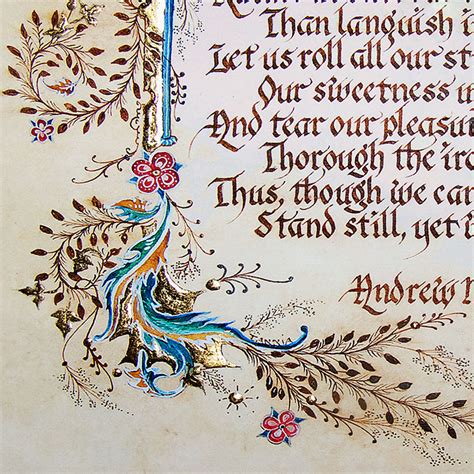 Than languish i
Let us roll all our st
Our sweetness
And tear our pleasu
Thorough the iro
Thus, though we can
Stand still, yet
Andrew